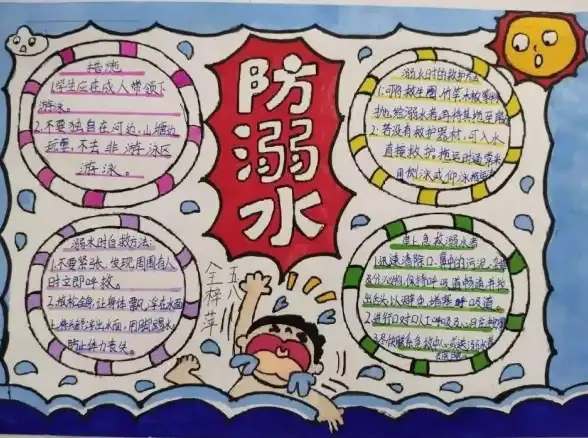 防溺水
措施
1.学生应在成人带领下
游泳。
2.不要独自在河边、山塘边
玩耍,不去非游泳区
游泳。
溺水时的救护方法
1:可将救生圈、竹竿、木板等
抛给溺水者,再将其拖至岸
2:若没有救护器材,可入水
直接救护。
用侧泳或仰泳
溺水时自救方法:
1.不要紧张,发现周围有人
时立即呼救。
2.放松全身,让身体飘浮在水面
上,将头部浮出水面,用脚踢水,
防止体力丧失。
岸上急救溺水者
1.迅速清除口、鼻中的污泥、
及分泌物,保持呼吸道畅通,并
出舌头以避免堵塞呼吸道。
2.进行口对口人工呼吸及心
3.尽快联系急救中心或送溺水者
五八
全梓萍